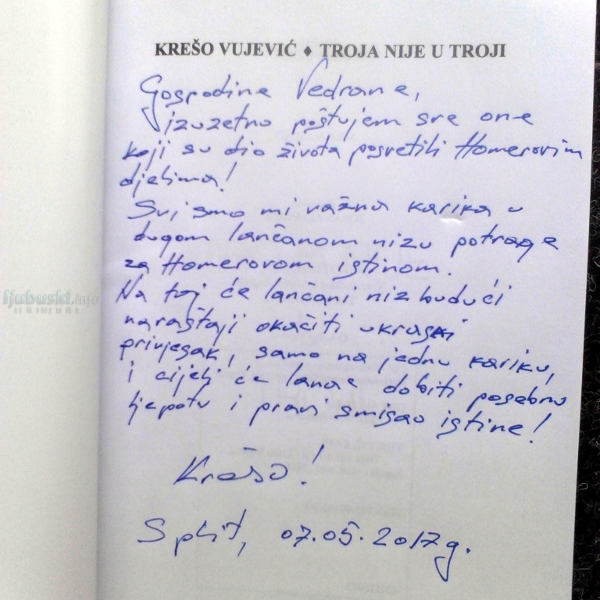 KREŠO VUJEVIĆ ♦ TROJA NIJE U TROJI
Gospodine Vedrane,
izuzetno poštujem sve one
koji su dio života posvetili Homerovim
djelima!
Svi smo mi važna karika u
dugom lančanom nizu potrage
za Homerovom istinom.
Na taj će lančani niz budući
naraštaji okačiti ukrasni
privjesak, samo na jednu kariku,
i cijeli će lanac dobiti posebnu
ljepotu i pravi smisao istine!
Krešo!
Split, 07.05.2017g.
ljubuski.info